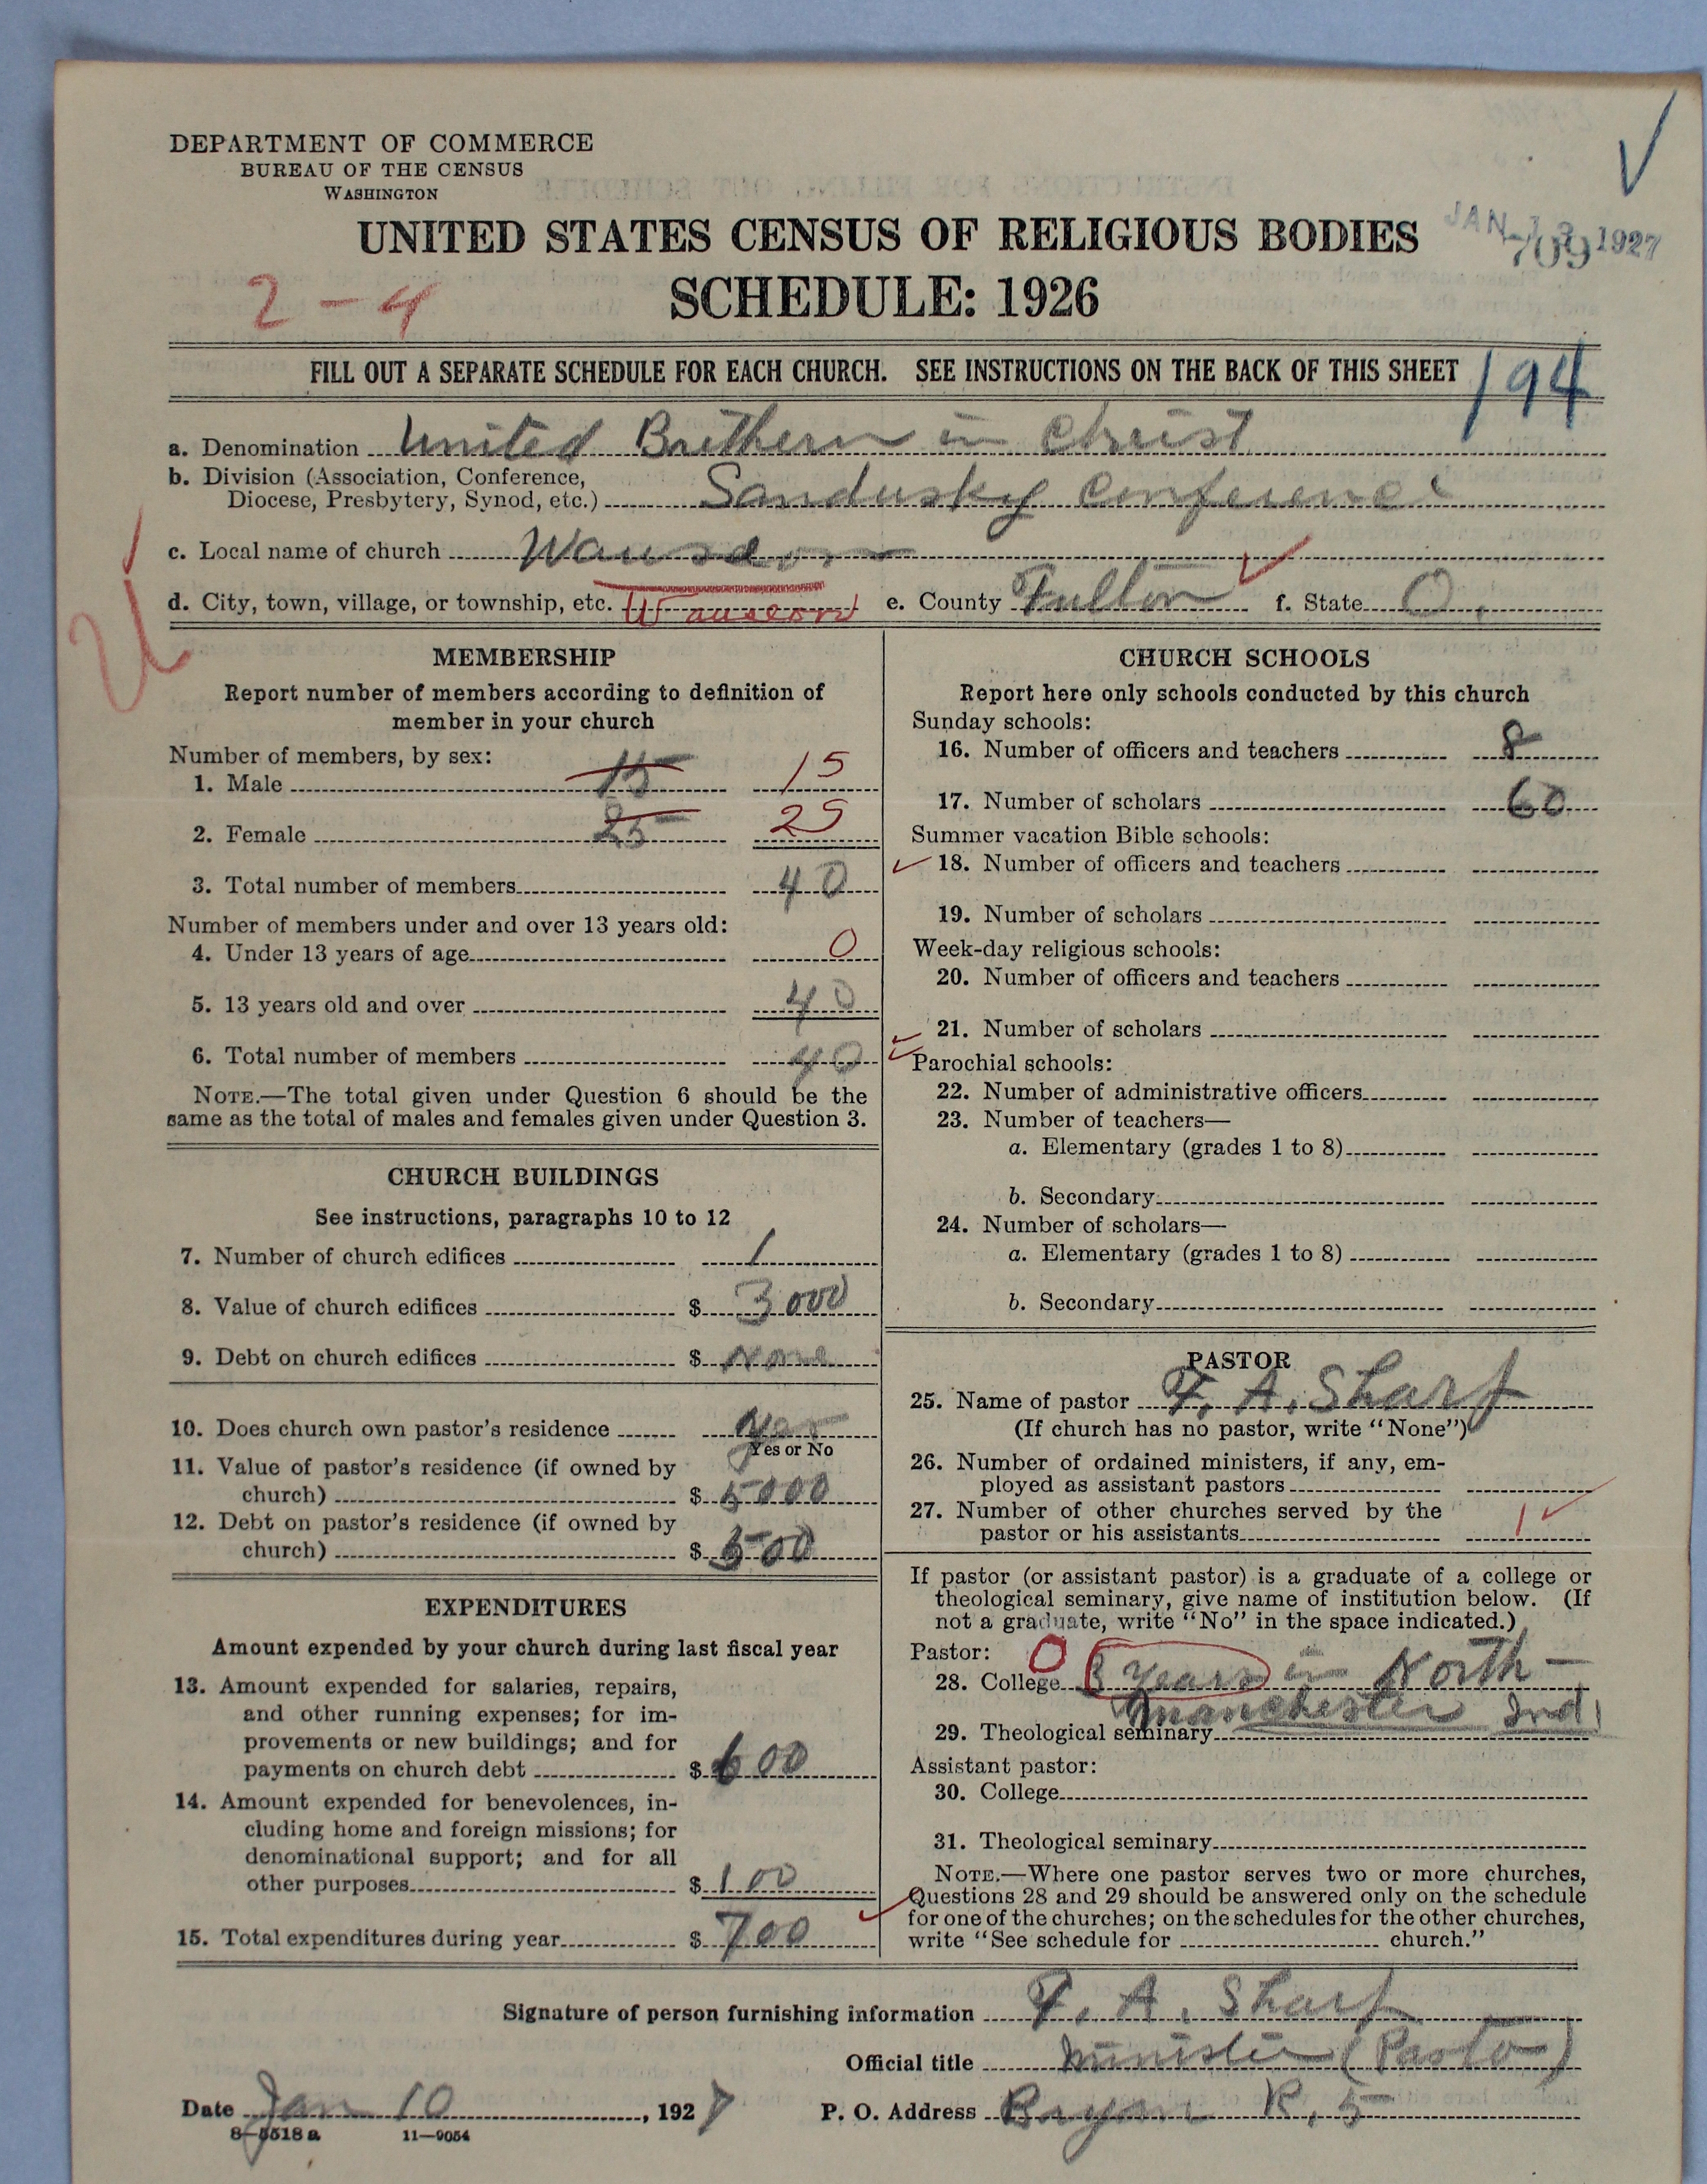 DEPARTMENT OF COMMERCE
BUREAU OF THE CENSUS
WASHINGTON
UNITED STATES CENSUS OF RELIGIOUS BODIES
JAN 1927
709
2-4
SCHEDULE: 1926
FILL OUT A SEPARATE SCHEDULE FOR EACH CHURCH. SEE INSTRUCTIONS ON THE BACK OF THIS SHEET
194
a. Denomination United Brethern in Christ
b. Division (Association, Conference,
Diocese, Presbytery, Synod, etc.) Sandusky Conference
c. Local name of church Wauseon
d. City, town, village, or township, etc. Wauseon e. County Fulton f. State O.
MEMBERSHIP
Report number of members according to definition of
member in your church
Number of members, by sex:
1. Male 15 15
2. Female 25 25
3. Total number of members 40
Number of members under and over 13 years old:
4. Under 13 years of age 0
5. 13 years old and over 40
6. Total number of members 40
NOTE.—The total given under Question 6 should be the
same as the total of males and females given under Question 3.
CHURCH BUILDINGS
See instructions, paragraphs 10 to 12
7. Number of church edifices 1
8. Value of church edifices $ 3000
9. Debt on church edifices $ None
10. Does church own pastor's residence Yes
Yes or No
11. Value of pastor's residence (if owned by
church) $ 5000
12. Debt on pastor's residence (if owned by
church) $ 500
EXPENDITURES
Amount expended by your church during last fiscal year
13. Amount expended for salaries, repairs,
and other running expenses; for im-
provements or new buildings; and for
payments on church debt $ 600
14. Amount expended for benevolences, in-
cluding home and foreign missions; for
denominational support; and for all
other purposes $ 100
15. Total expenditures during year $ 700
CHURCH SCHOOLS
Report here only schools conducted by this church
Sunday schools:
16. Number of officers and teachers 8
17. Number of scholars 60
Summer vacation Bible schools:
18. Number of officers and teachers
19. Number of scholars
Week-day religious schools:
20. Number of officers and teachers
21. Number of scholars
Parochial schools:
22. Number of administrative officers
23. Number of teachers—
a. Elementary (grades 1 to 8)
b. Secondary
24. Number of scholars—
a. Elementary (grades 1 to 8)
b. Secondary
PASTOR
25. Name of pastor F. A. Sharf
(If church has no pastor, write "None")
26. Number of ordained ministers, if any, em-
ployed as assistant pastors
27. Number of other churches served by the
pastor or his assistants 1
If pastor (or assistant pastor) is a graduate of a college or
theological seminary, give name of institution below. (If
not a graduate, write "No" in the space indicated.)
Pastor: 0
28. College 3 years in North-
Manchester Ind.
29. Theological seminary
Assistant pastor:
30. College
31. Theological seminary
NOTE.—Where one pastor serves two or more churches,
Questions 28 and 29 should be answered only on the schedule
for one of the churches; on the schedules for the other churches,
write "See schedule for church."
Signature of person furnishing information F. A. Sharf
Official title Minister (Pastor)
Date Jan 10, 1927 P. O. Address Bryan R. 5
8-5518a 11-9054